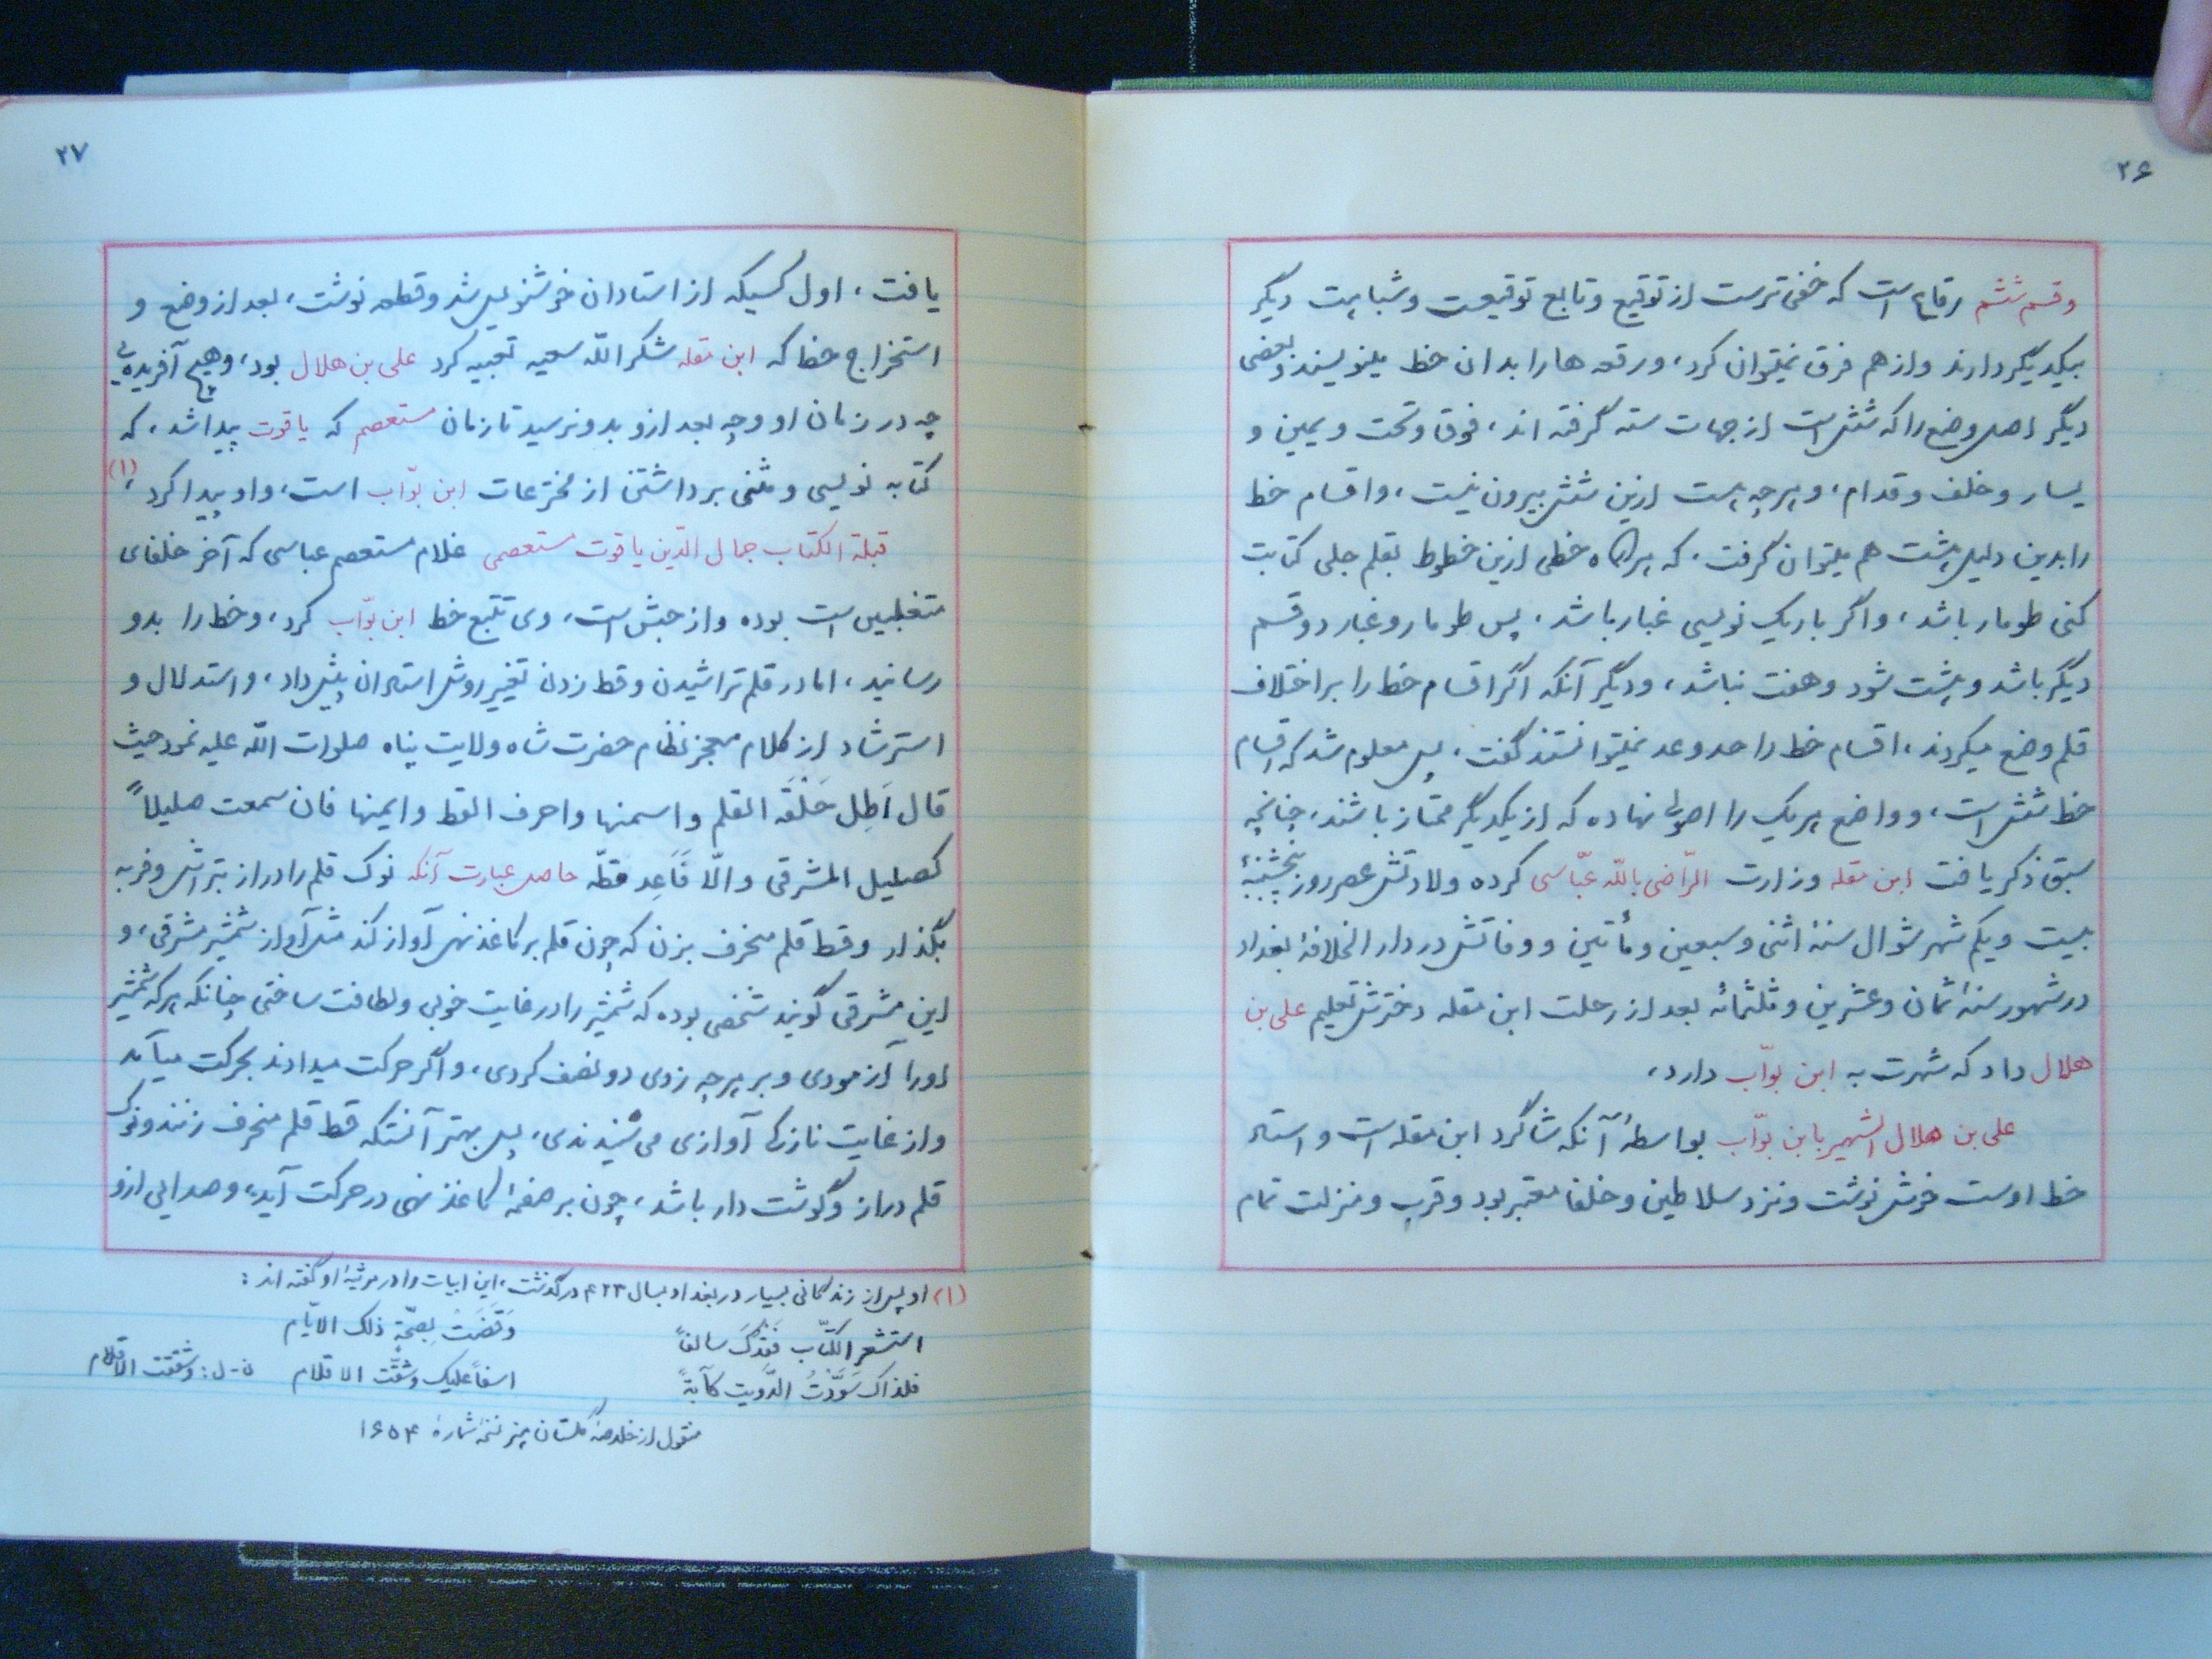 ۲۶
و قسم ششم رقاع است که خفی ترست از توقیع و تابع توقیعست و شباهت دیگر
بیکدیگر دارند و از هم فرق نمیتوان کرد، و رقعه ها را بدان خط مینویسند و بعضی
دیگر اصل وضع را که شش است از جهات سته گرفته اند، فوق و تحت و یمین و
یسار و خلف و قدام، و هرچه هست ازین شش بیرون نیست، و اقسام خط
را بدین دلیل هشت هم میتوان گرفت. که هرگاه خطی ازین خطوط بقلم جلی کتابت
کنی طومار باشد، و اگر باریک نویسی غبار باشد. پس طومار و غبار دو قسم
دیگر باشد و هشت شود و هفت نباشد، و دیگر آنکه اگر اقسام خط را بر اختلاف
قلم وضع میکردند، اقسام خط را حد و عد نمیتوانستند گفت، پس معلوم شد که اقسام
خط شش است، و واضع هریک را اصولی نهاده که از یکدیگر ممتاز باشند، چنانچه
سبق ذکر یافت ابن مقله وزارت الرّاضی باللّه عبّاسی کرده ولادتش عصر روز پنجشنبهٔ
بیست و یکم شهر شوال سنهٔ اثنی و سبعین و مأتین و وفاتش در دار الخلافهٔ بغداد
در شهور سنهٔ ثمان و عشرین و ثلثمائه بعد از رحلت ابن مقله دخترش تعلیم علی بن
هلال داد که شهرت به ابن بوّاب دارد،
علی بن هلال الشهیر بابن بوّاب بواسطهٔ آنکه شاگرد ابن مقله است و استاد
خط اوست خوش نوشت و نزد سلاطین و خلفا معتبر بود و قرب و منزلت تمام
۲۷
یافت، اول کسیکه از استادان خوشنویس شد و قطعه نوشت، بعد از وضع و
استخراج خط که ابن مقله شکر اللّه سعیه تعبیه کرد علی بن هلال بود، و هیچ آفریده یی
چه در زمان او و چه بعد ازو بدو نرسید تا زمان مستعصم که یاقوت پیدا شد، که
کتابه نویسی و مثنی برداشتن از مخترعات ابن بوّاب است، و او پیدا کرد، (۱)
قبلة الکتاب جمال الدّین یاقوت مستعصمی غلام مستعصم عباسی که آخر خلفای
متغلبین است بوده و از حبش است، وی تتبع خط ابن بوّاب کرد، و خط را بدو
رسانید، اما در قلم تراشیدن و قط زدن تغییر روش استادان پیش داد، و استدلال و
استرشاد از کلام معجز نظام حضرت شاه ولایت پناه صلوات اللّه علیه نمود حیث
قال اَطِل حَلْقَه القلم و اسمنها و احرف القط و ایمنها فان سمعت صلیلاً
کصلیل المشرقی و الّا فَاَعِد قطّه حاصل عبارت آنکه نوک قلم را دراز بتراش و فربه
بگذار و قط قلم منحرف بزن که چون قلم بر کاغذ نهی آواز کند مثل آواز شمشیر مشرقی، و
این مشرقی گویند شخصی بوده که شمشیر را در غایت خوبی و لطافت ساختی چنانکه هرکه شمشیر
او را آزمودی و بر هرچه زدی دو نصف کردی، و اگر حرکت میدادند بحرکت میآمد
و از غایت نازکی آوازی می شنیدندی، پس بهتر آنستکه قط قلم منحرف زنند و نوک
قلم دراز و گوشت دار باشد، چون بر صفحهٔ کاغذ نهی در حرکت آید، و صدایی ازو
(۱) او پس از زندگانی بسیار در بغداد بسال ۴۲۳ درگذشت، این ابیات را در مرثیهٔ او گفته اند:
استشعر الکتّاب فَقْدَکَ سالفاً وَقَضَتْ بِصحّةِ ذلک الایّام
فلذاک سَوَّدْتُ الدَّویت کآبةً اسفاً علیک و شقّت الاقلام ن-ل: و شققت الاقلام
منقول از خلاصهٔ گلستان هنر نسخهٔ شمارهٔ ۱۶۵۴